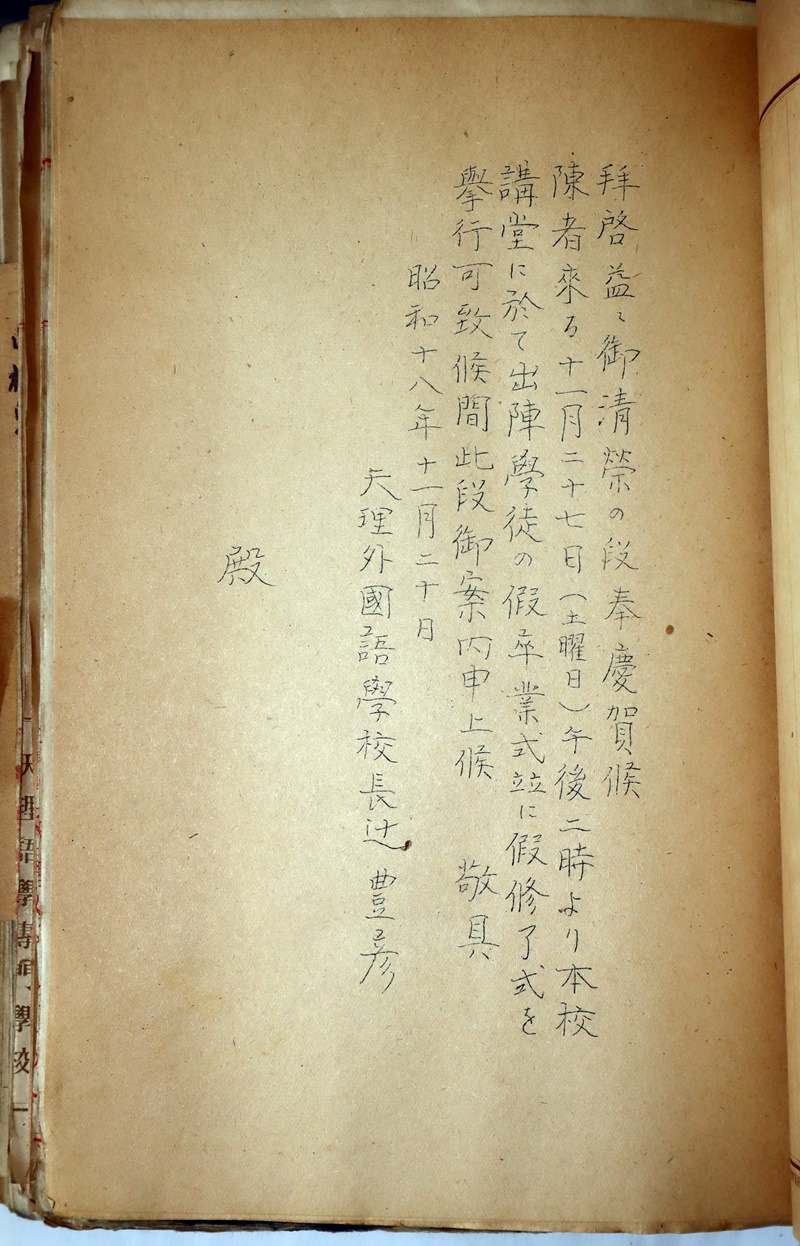 拜啓益〻御清榮の段奉慶賀候
陳者來る十一月二十七日(土曜日)午後二時より本校
講堂に於て出陣學徒の假卒業式竝に假修了式を
擧行可致候間此段御案內申上候　敬具
昭和十八年十一月二十日
天理外國語學校長辻豊彦
殿